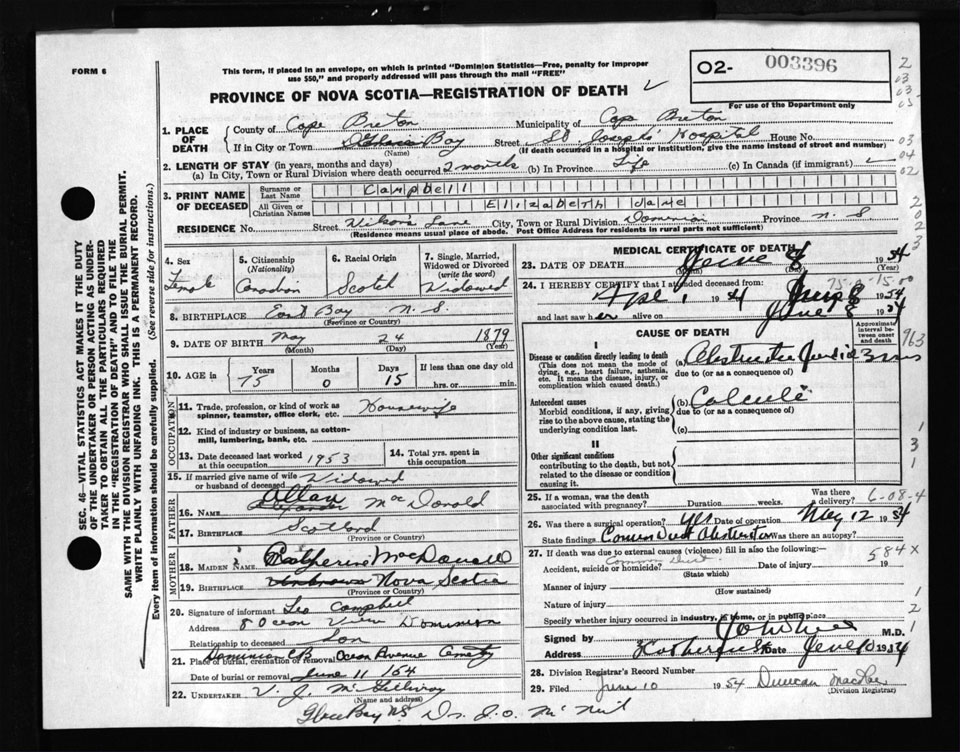 FORM 6
This form, if placed in an envelope, on which is printed "Dominion Statistics—Free, penalty for improper
use $50," and properly addressed will pass through the mail "FREE"
PROVINCE OF NOVA SCOTIA—REGISTRATION OF DEATH
02- 003396
For use of the Department only
1. PLACE OF DEATH
County of Cape Breton Municipality of Cape Breton
If in City or Town Glace Bay Street St Joseph's Hospital House No.
(Name) (If death occurred in a hospital or institution, give the name instead of street and number)
2. LENGTH OF STAY (in years, months and days)
(a) In City, Town or Rural Division where death occurred 2 months (b) In Province Life (c) In Canada (if immigrant)
3. PRINT NAME OF DECEASED
Surname or Last Name Campbell
All Given or Christian Names Elizabeth Jane
RESIDENCE No. Street City, Town or Rural Division Dominion Province N. S.
(Residence means usual place of abode. Post Office Address for residents in rural parts not sufficient)
4. Sex Female
5. Citizenship (Nationality) Canadian
6. Racial Origin Scotch
7. Single, Married, Widowed or Divorced (write the word) Widowed
8. BIRTHPLACE East Bay N. S.
(Province or Country)
9. DATE OF BIRTH May 24 1879
(Month) (Day) (Year)
10. AGE in Years 75 Months 0 Days 15 If less than one day old hrs. or min.
OCCUPATION
11. Trade, profession, or kind of work as spinner, teamster, office clerk, etc. Housewife
12. Kind of industry or business, as cotton-mill, lumbering, bank, etc.
13. Date deceased last worked at this occupation 1953
14. Total yrs. spent in this occupation
15. If married give name of wife or husband of deceased Widowed
FATHER
16. NAME Allan MacDonald
17. BIRTHPLACE Scotland
(Province or Country)
MOTHER
18. MAIDEN NAME Catherine MacDonald
19. BIRTHPLACE Unknown Nova Scotia
(Province or Country)
20. Signature of informant Leo Campbell
Address 8 Ocean View Dominion
Relationship to deceased Son
21. Place of burial, cremation or removal Dominion CB Ocean Avenue Cemetery
Date of burial or removal June 11/54
22. UNDERTAKER V. J. McGillivray
(Name and address)
Glace Bay NS Dr. J. O. McNeil
MEDICAL CERTIFICATE OF DEATH
23. DATE OF DEATH June 8 1954
(Month) (Day) (Year)
24. I HEREBY CERTIFY that I attended deceased from:
1 1954 June 8 1954
and last saw her alive on June 8 1954
CAUSE OF DEATH
Approximate interval between onset and death
I
Disease or condition directly leading to death
(This does not mean the mode of dying, e.g., heart failure, asthenia, etc. It means the disease, injury, or complication which caused death.)
(a) Obstructive
due to (or as a consequence of)
Antecedent causes
Morbid conditions, if any, giving rise to the above cause, stating the underlying condition last.
(b)
due to (or as a consequence of)
(c)
II
Other significant conditions
contributing to the death, but not related to the disease or condition causing it.
25. If a woman, was the death associated with pregnancy? Duration weeks. Was there a delivery?
6-08-4
26. Was there a surgical operation? Yes Date of operation May 12 1954
State findings Common Duct Obstruction Was there an autopsy?
27. If death was due to external causes (violence) fill in also the following:—
Accident, suicide or homicide? Date of injury 19
(State which)
584x
Manner of injury
(How sustained)
Nature of injury
Specify whether injury occurred in industry, in home, or in public place
Signed by M.D.
Address Date June 10 1954
28. Division Registrar's Record Number
29. Filed June 10 1954 Duncan
(Division Registrar)
SEC. 46—VITAL STATISTICS ACT MAKES IT THE DUTY
OF THE UNDERTAKER OR PERSON ACTING AS UNDER-
TAKER TO OBTAIN ALL THE PARTICULARS REQUIRED
IN THE "REGISTRATION OF DEATH" AND TO FILE THE
SAME WITH THE DIVISION REGISTRAR WHO SHALL ISSUE THE BURIAL PERMIT.
WRITE PLAINLY WITH UNFADING INK. THIS IS A PERMANENT RECORD.
Every item of information should be carefully supplied. (See reverse side for instructions.)